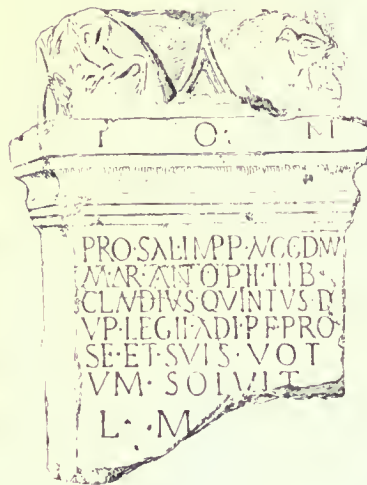 I O M
PRO·SAL·IMPP·
MAR·ANTOPII·TIB·
CLAVDIVS QVINTVS D
VP·LEG II·ADI·P F PRO·
SE·ET·SVIS·VOT
VM·SOLVIT
L·M